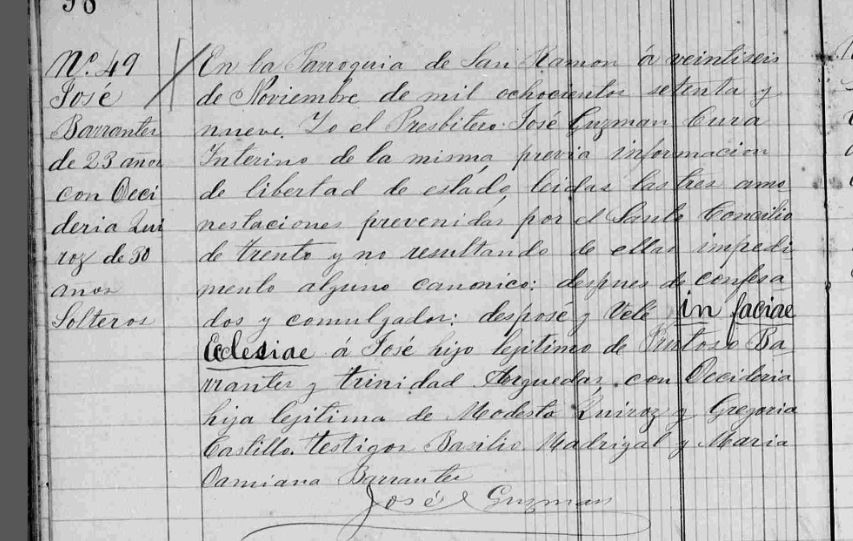 98
Nº. 49
José
Barrantes
de 23 años
con Occi
deria Qui
roz de 30
anos
Solteros
En la Parroquia de San Ramon á veintiseis
de Noviembre de mil ochocientos setenta y
nueve. Yo el Presbitero José Guzman Cura
Interino de la misma, previa informacion
de libertad de estado, leidas las tres amo
nestaciones prevenidas por el Santo Concilio
de trento y no resultando de ellas impedi
mento alguno canonico: despues de confesa
dos y comulgados: desposé y Velé in faciae
Ecclesiae á José hijo lejitimo de Ba-
rrantes y trinidad Arguedas, con Occideria
hija lejitima de Modesto Quiroz y Gregoria
Castillo. testigos Basilio Madrigal y Maria
Damiana Barrantes
José Guzman